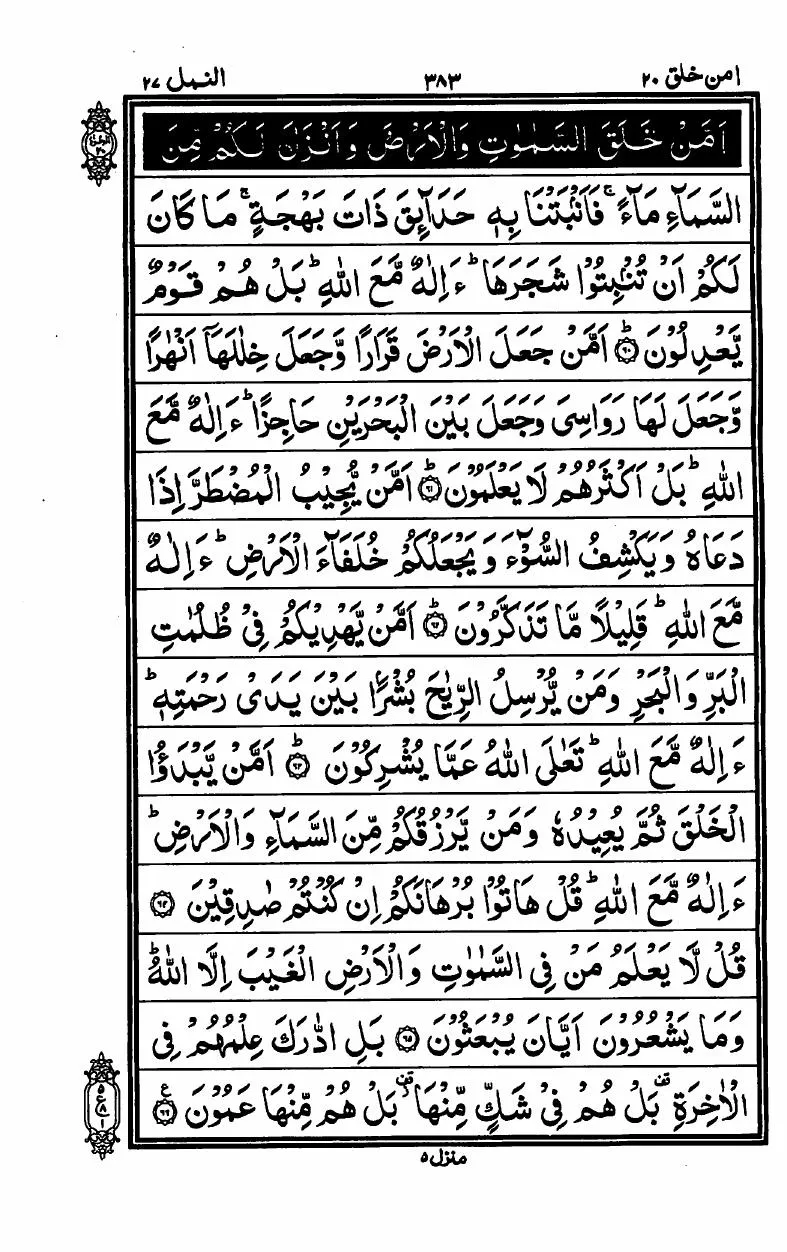 امن خلق ۲۰ ۳۸۳ النمل ۲۷
اَمَّنْ خَلَقَ السَّمٰوٰتِ وَالْاَرْضَ وَاَنْزَلَ لَكُمْ مِّنَ
السَّمَآءِ مَآءً ۚ فَاَنْۢبَتْنَا بِهٖ حَدَآئِقَ ذَاتَ بَهْجَةٍ ۚ مَا كَانَ
لَكُمْ اَنْ تُنْۢبِتُوْا شَجَرَهَا ؕ ءَاِلٰهٌ مَّعَ اللّٰهِ ؕ بَلْ هُمْ قَوْمٌ
يَّعْدِلُوْنَ ﴿۶۰﴾ؕ اَمَّنْ جَعَلَ الْاَرْضَ قَرَارًا وَّجَعَلَ خِلٰلَهَاۤ اَنْهٰرًا
وَّجَعَلَ لَهَا رَوَاسِىَ وَجَعَلَ بَيْنَ الْبَحْرَيْنِ حَاجِزًا ؕ ءَاِلٰهٌ مَّعَ
اللّٰهِ ؕ بَلْ اَكْثَرُهُمْ لَا يَعْلَمُوْنَ ﴿۶۱﴾ؕ اَمَّنْ يُّجِيْبُ الْمُضْطَرَّ اِذَا
دَعَاهُ وَيَكْشِفُ السُّوْٓءَ وَيَجْعَلُكُمْ خُلَفَآءَ الْاَرْضِ ؕ ءَاِلٰهٌ
مَّعَ اللّٰهِ ؕ قَلِيْلًا مَّا تَذَكَّرُوْنَ ﴿۶۲﴾ؕ اَمَّنْ يَّهْدِيْكُمْ فِىْ ظُلُمٰتِ
الْبَرِّ وَالْبَحْرِ وَمَنْ يُّرْسِلُ الرِّيٰحَ بُشْرًۢا بَيْنَ يَدَىْ رَحْمَتِهٖ ؕ
ءَاِلٰهٌ مَّعَ اللّٰهِ ؕ تَعٰلَى اللّٰهُ عَمَّا يُشْرِكُوْنَ ﴿۶۳﴾ؕ اَمَّنْ يَّبْدَؤُا
الْخَلْقَ ثُمَّ يُعِيْدُهٗ وَمَنْ يَّرْزُقُكُمْ مِّنَ السَّمَآءِ وَالْاَرْضِ ؕ
ءَاِلٰهٌ مَّعَ اللّٰهِ ؕ قُلْ هَاتُوْا بُرْهَانَكُمْ اِنْ كُنْتُمْ صٰدِقِيْنَ ﴿۶۴﴾
قُلْ لَّا يَعْلَمُ مَنْ فِى السَّمٰوٰتِ وَالْاَرْضِ الْغَيْبَ اِلَّا اللّٰهُ ؕ
وَمَا يَشْعُرُوْنَ اَيَّانَ يُبْعَثُوْنَ ﴿۶۵﴾ بَلِ ادّٰرَكَ عِلْمُهُمْ فِى
الْاٰخِرَةِ ۫ بَلْ هُمْ فِىْ شَكٍّ مِّنْهَا ۫ بَلْ هُمْ مِّنْهَا عَمُوْنَ ﴿۶۶﴾ع
۵
ع ۸
۱
منزل ۵